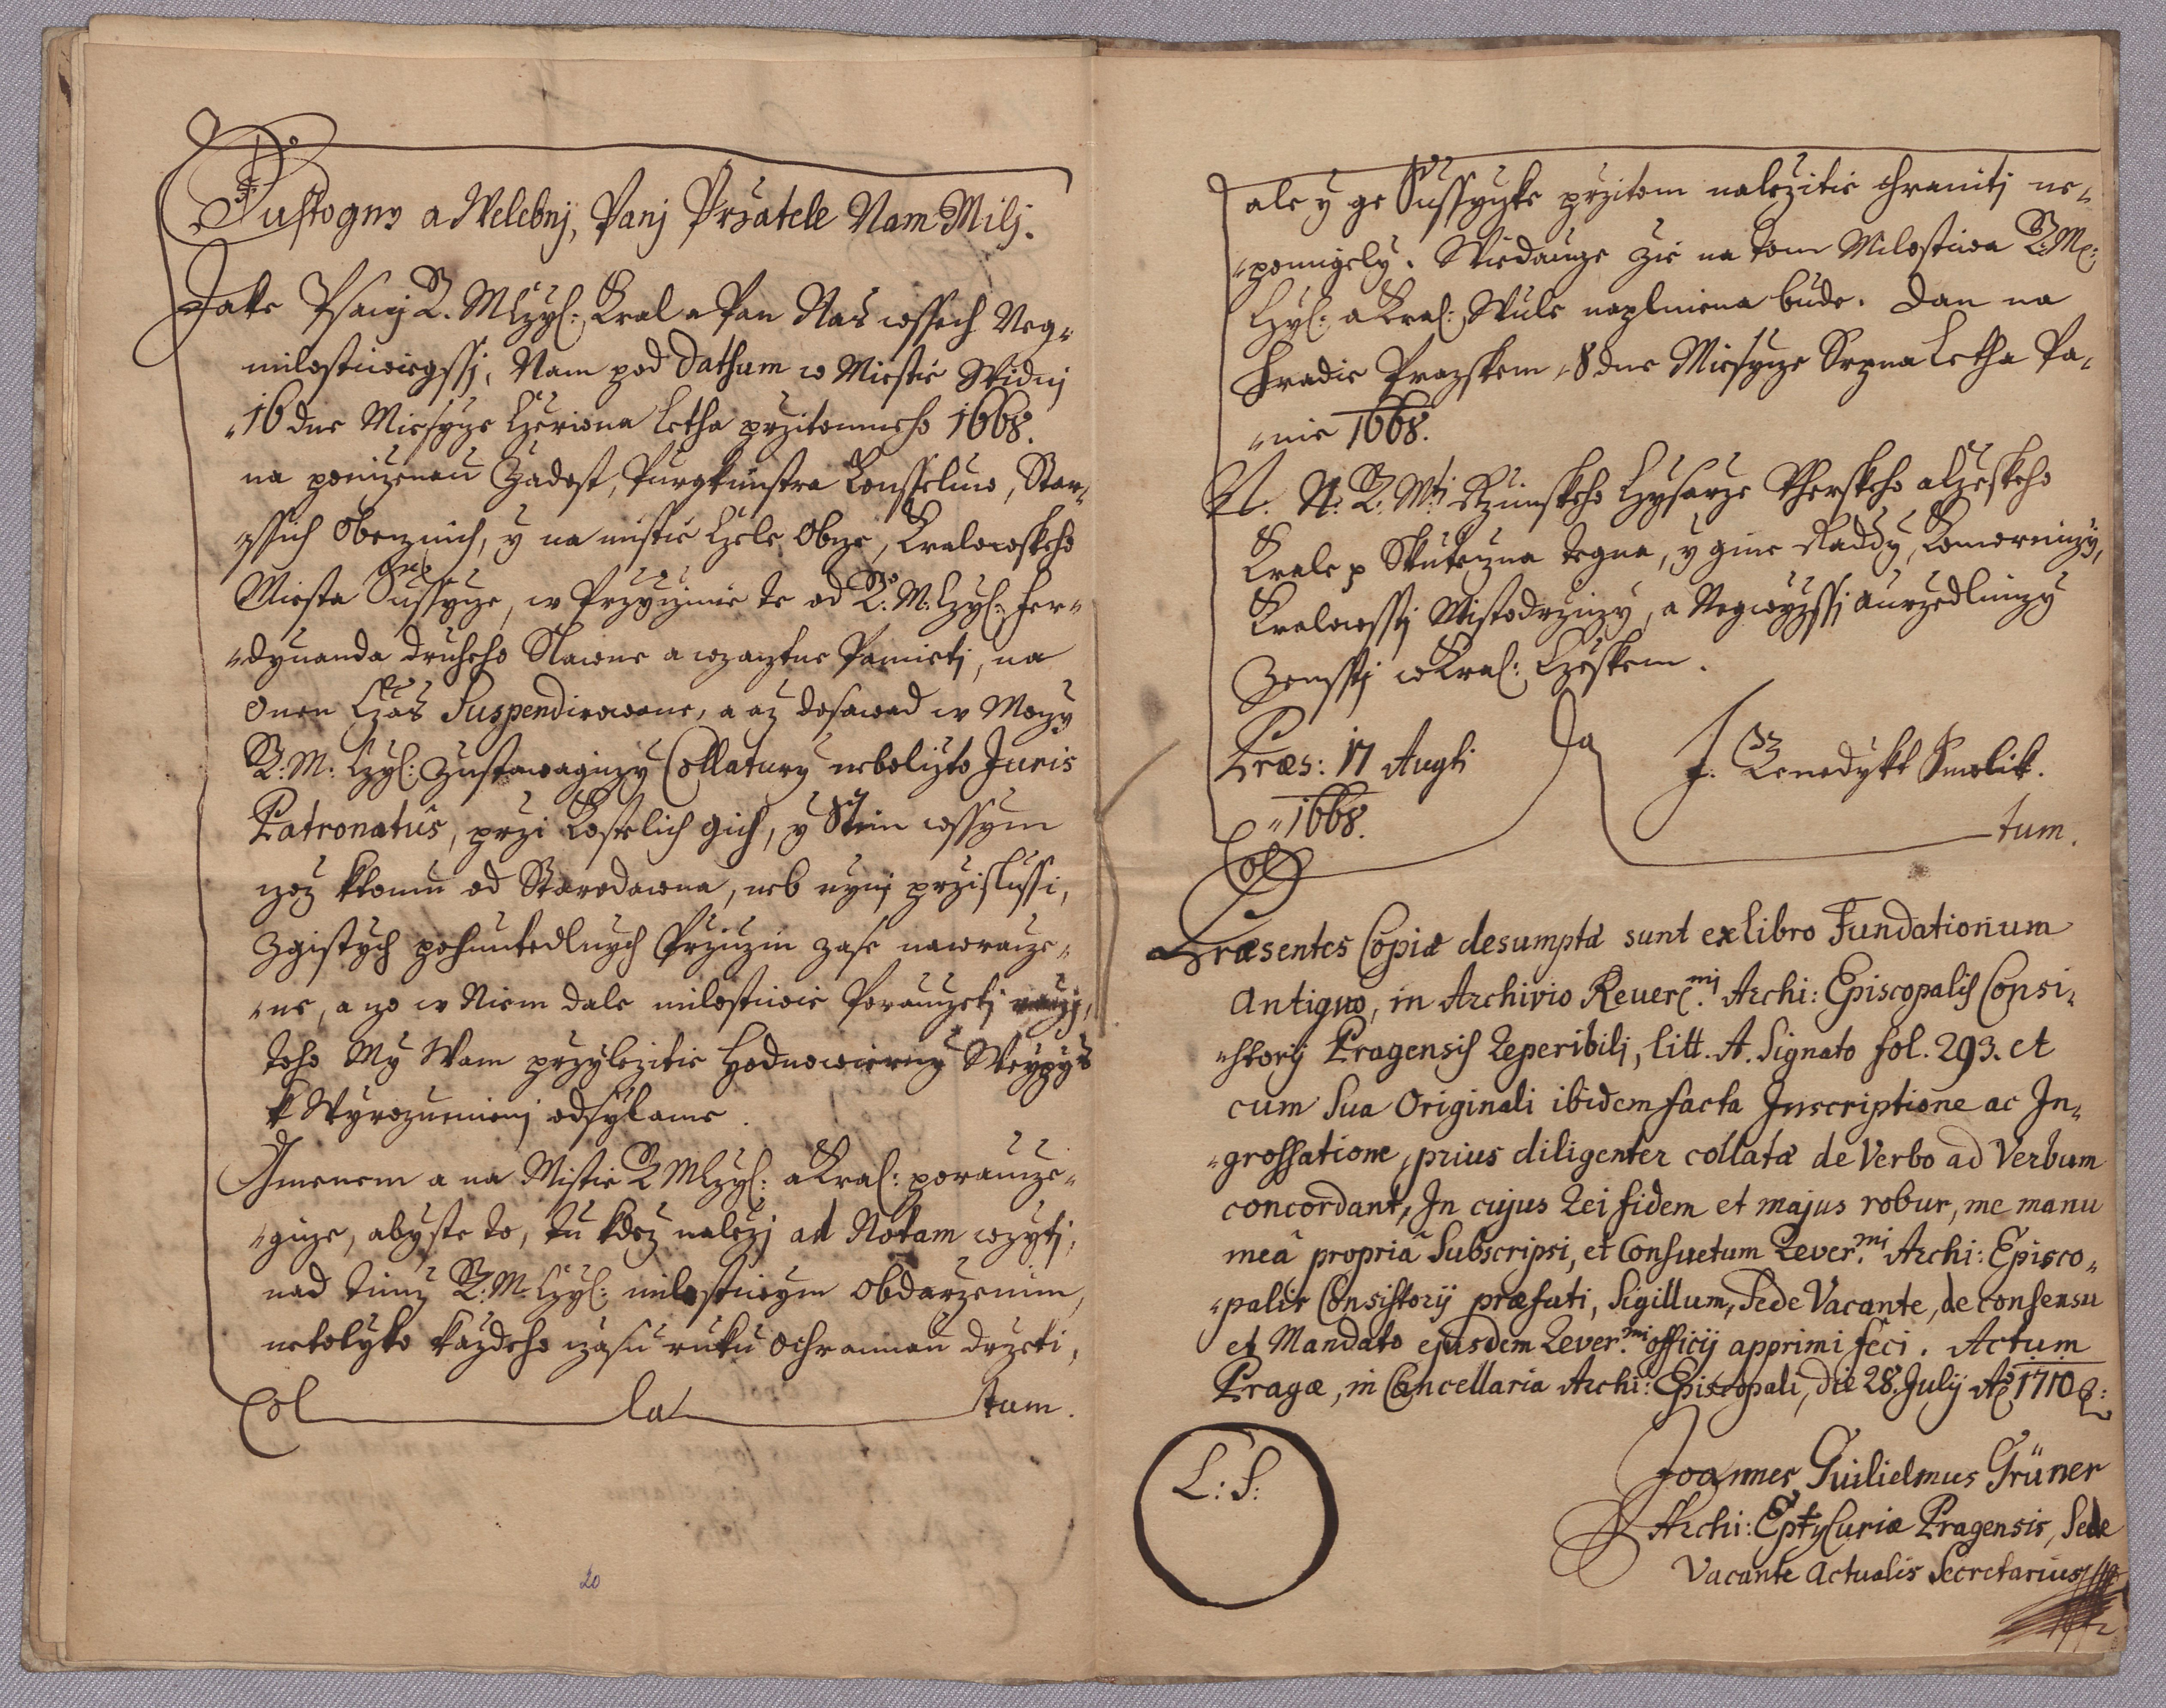 Dustogny a Welebnj, Panj Przatele Nam Milj.
Jake Psanj R. M Czýs: Kral a Pan Náß wssech Neg=
milostiwiegssj, Nam pod Dathum w Miestie Widnj
16 dne Miesýcze Czerwna Letha przitomneho 1668.
na ponizenau Zadost, Purgkmistra Konsseluw, Star=
ssich Obecznich, ý na mistie Czele Obcze, Kralowskeho
Miesta Sussycze, w Przýczinie te od R: M: Czýs: Fer=
dynanda druheho Slawne a wzactne Pamieti, na
onen Czas Suspendirowane, a až dosawad w Moczý
R: M: Czýs: Zustawagiczý Collatury neboližto Juris
Patronatus, przi Kostelich gich, ý Stim wssým
czož ktomu od Starodawna, neb nýnj przislussi,
Zgistých pohnutedlných Przjczin zase nawracze=
ne, a czo w Niem dale milostiwie Porauczeti raczj,
toho Mý Wam przýležitie Hodnowierný Weýpýs
k Wyrozumienj odsýlame.
Gmenem a na Mistie R M Czýs: a Kral: poraucze=
gicze, abýste to, tu kdež naležj ad Notam wzýti,
nad timž R: M: Czýs: milostiwým Obdarzenim,
netolýko každeho czasu ruku Ochrannau držeti,
Col la tum.
20
ale ý ge Sussýczke przitom naležitie chraniti ne=
pomingelý. Wiedaucze že na tom Milostiwa R: M:
Czýs: a Kral: Wule naplniena bude. Dan na
Hradie Prazskem 8 dne Miesýcze Srpna Letha Pa=
nie 1668.
N. N. R. Mti Rzimskeho Czýsarze Uherskeho a Czeskeho
Krale p Skuteczna tegna, ý gine Raddý, Komornicý,
Kralowsstj Mistodrziczý, a Negwýžssj Aurzedlniczý
Zemsstj w Kral: Czeskem.
Præs: 17 Augti
1668.
J: Benedykt Smolik.
Col la tum.
Præsentes Copiæ desumptæ sunt ex libro Fundationum
Antiquo, in Archivio Reuer.mi Archi: Episcopalis Consi=
storij Pragensis Reperibilj, litt. A. Signato fol. 293. et
cum Sua Originali ibidem facta Inscriptione ac In=
grossatione, prius diligenter collatæ de Verbo ad Verbum
concordant, In cujus Rei fidem et majus robur, me manu
meâ propriâ Subscripsi, et Consuetum Rever.mi Archi: Episco=
palis Consistorij præfati, Sigillum, Sede Vacante, de consensu
et Mandato ejusdem Rever.mi officij apprimi feci. Actum
Pragæ, in Cancellaria Archi: Episcopali, die 28. Julij Ao 1710
L: S:
Joannes Guilielmus Grüner
Archi: Eptis Curiæ Pragensis, Sede
Vacante Actualis Secretarius